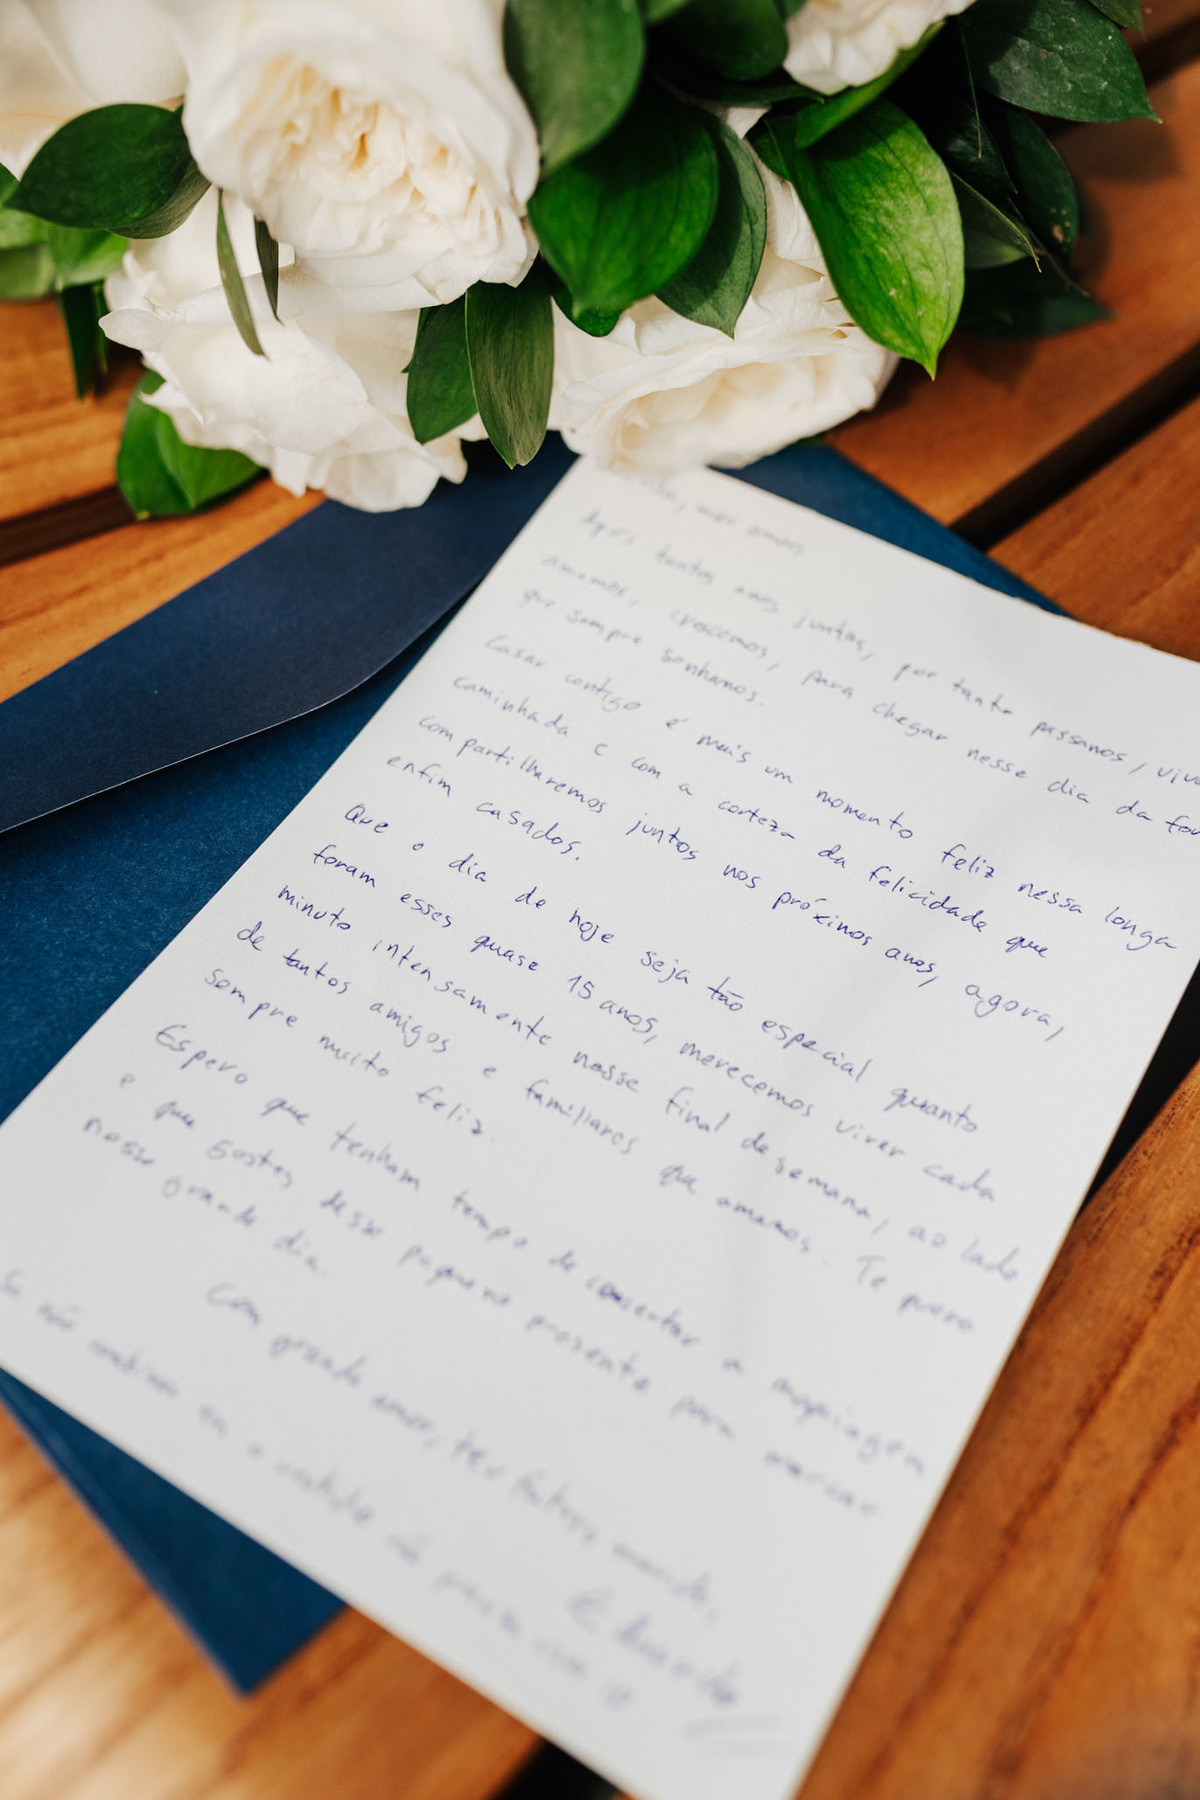 meu amor,
Após tantos anos juntos, por tanto passamos,
amamos, crescemos, para chegar nesse dia da
que sempre sonhamos.
Casar contigo é mais um momento feliz nessa longa
caminhada e com a certeza da felicidade que
compartilharemos juntos nos próximos anos, agora,
enfim casados.
Que o dia de hoje seja tão especial quanto
foram esses quase 15 anos, merecemos viver cada
minuto intensamente nesse final de semana, ao lado
de tantos amigos e familiares que amamos. Te quero
sempre muito feliz.
Espero que tenham tempo de consertar a maquiagem
e que gostes desse pequeno presente para marcar
nosso grande dia.
Com grande amor, teu futuro marido,
Eduardo
Se não combinar com o vestido não precisa usar